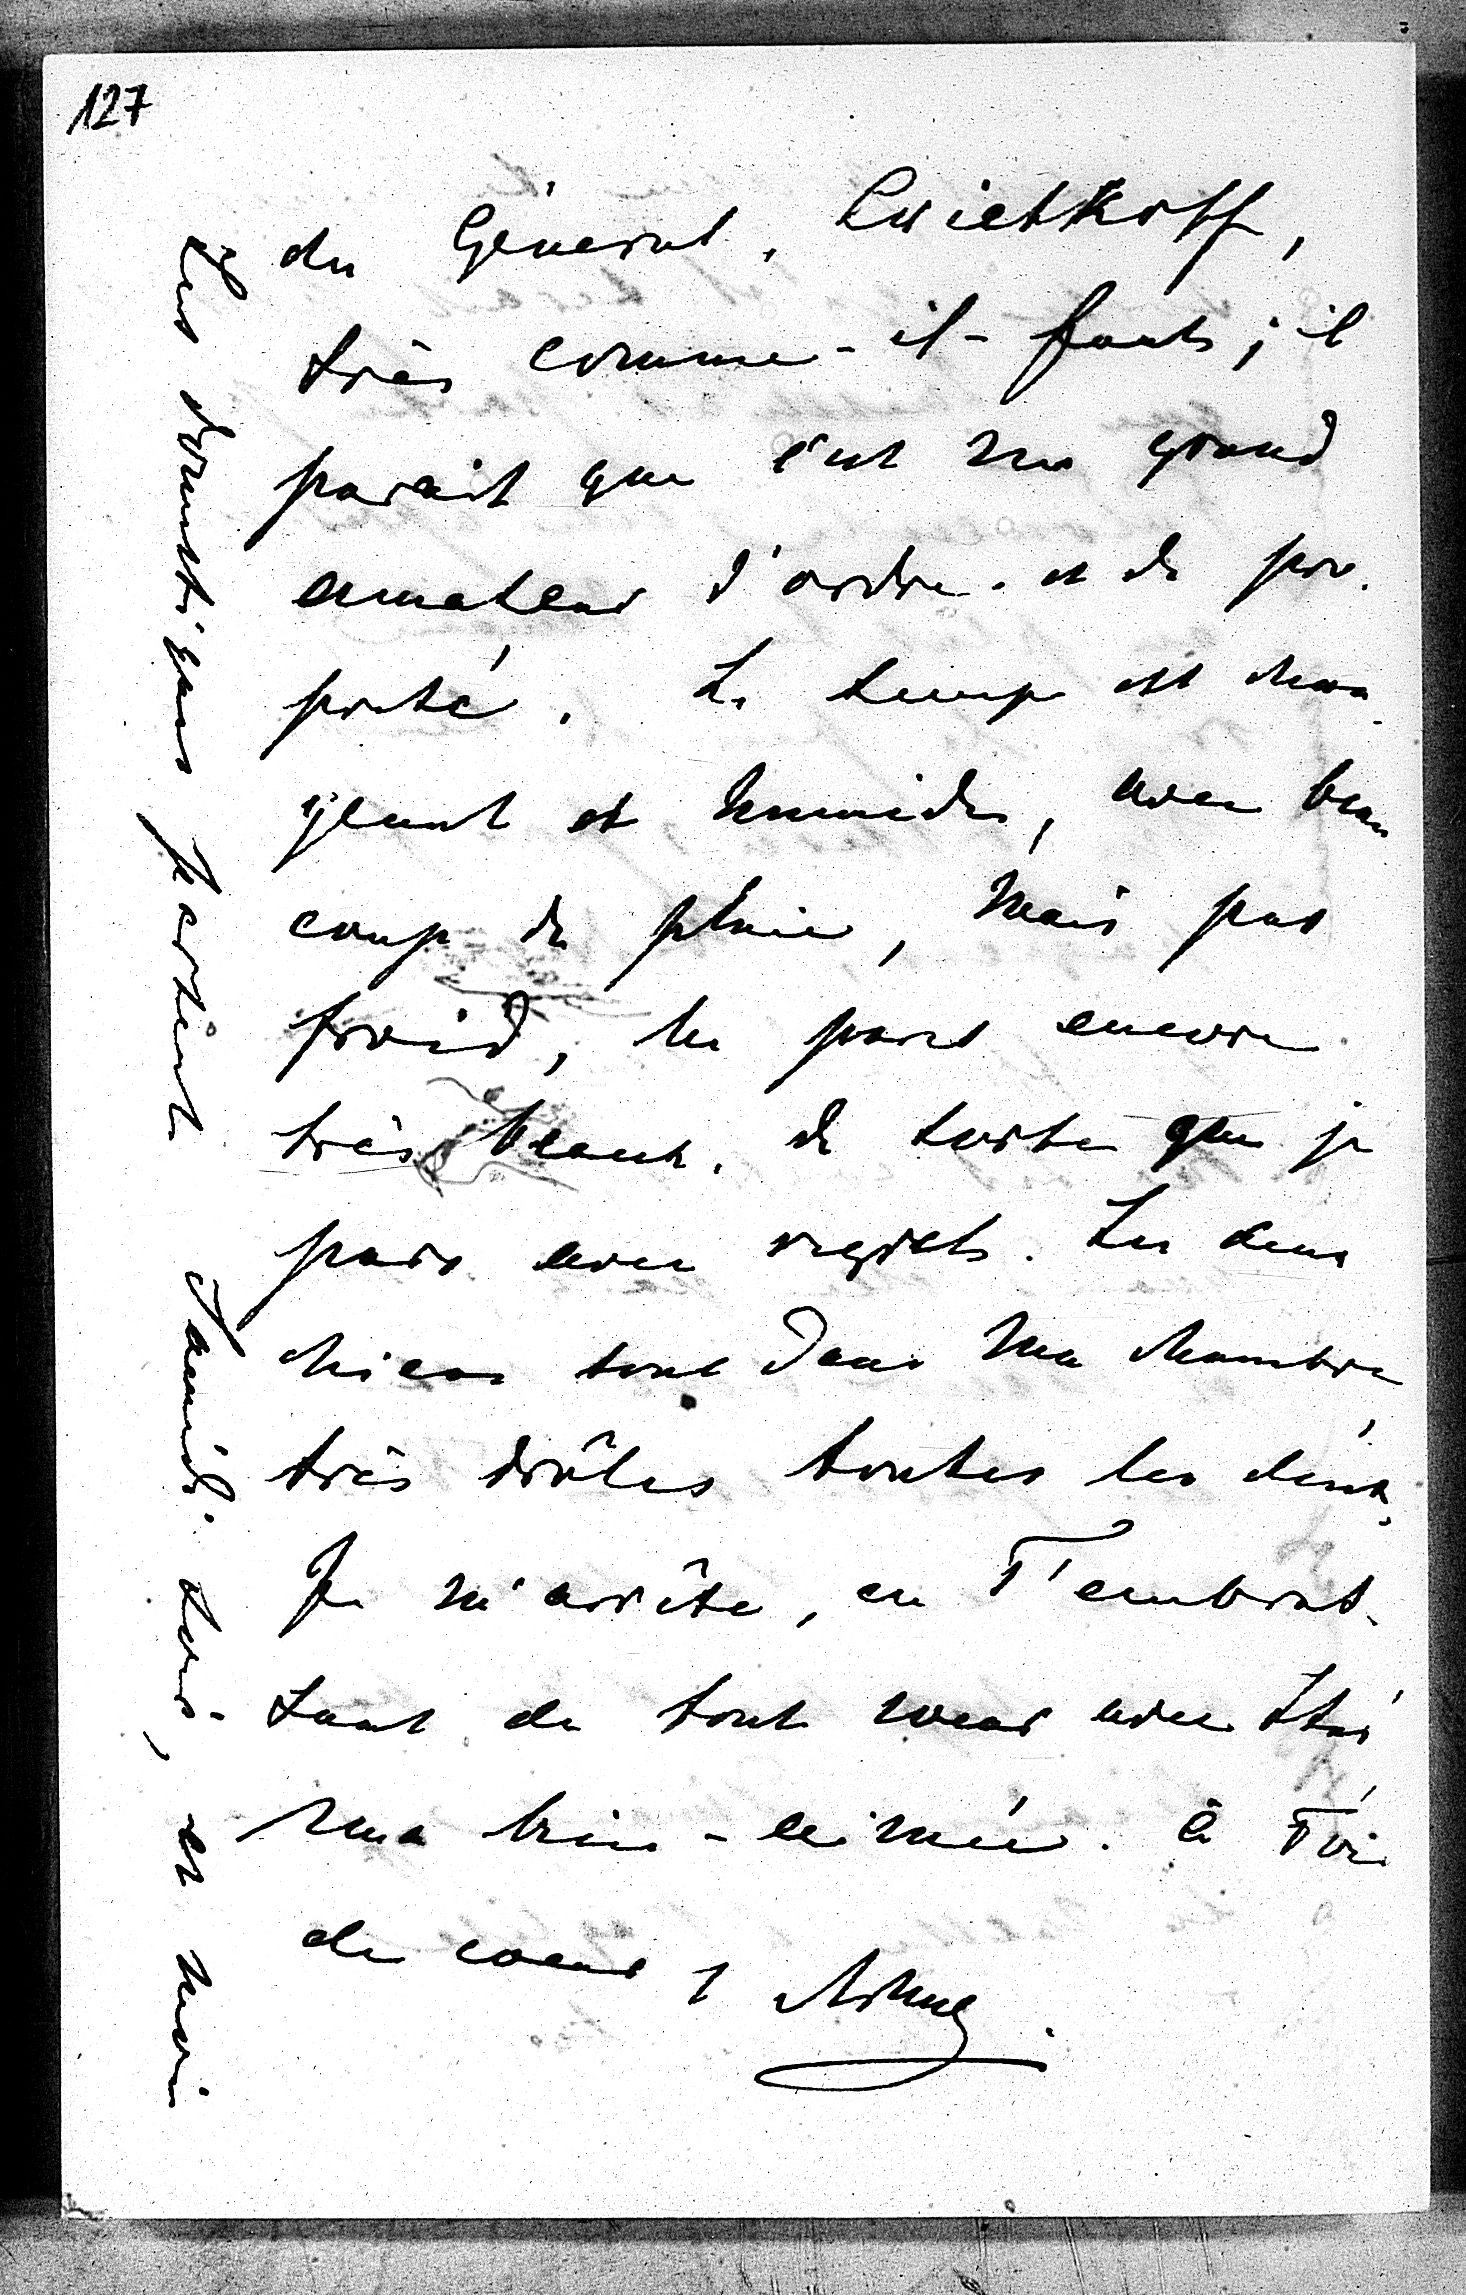 127
du Général, Cwietkoff,
très comme-il-faut; il
parait que c'est un grand
amateur d'ordre et de pro-
preté. Le temps est chan-
geant et humide, avec beau
coup de pluie, mais pas
froid, le parc encore
très beau, de sorte que je
pars avec regrets. Les deux
chiens sont dans ma chambre
très drôles toutes les deux.
Je m'arrête, en T'embras-
sant de tout coeur avec
ma bien-aimée. à Toi
de coeur
Les domestiques partent samedi soir, et moi